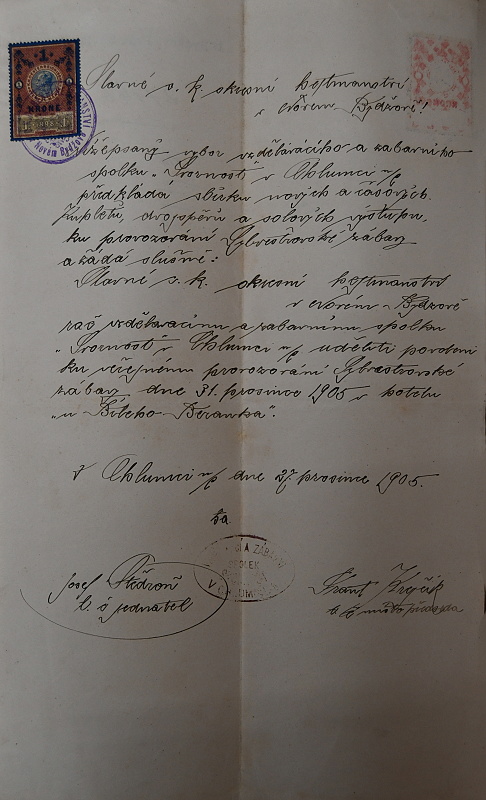 1
KRONE
1898
Novém Bydžově
Slavné c. k. okresní hejtmanství
v Novém Bydžově!
Nížepsaný výbor vzdělávacího a zábavního
spolku „Svornost“ v Chlumci n/C
předkládá sbírku nových a časových
kupletů, dvojzpěvů a solových výstupů,
ku provozování Sylvestrovské zábavy
a žádá slušně:
Slavné c. k. okresní hejtmanství
v Novém Bydžově
rač vzdělávacímu a zábavnímu spolku
„Svornost“ v Chlumci n/C uděliti povolení
ku veřejnému provozování Sylvestrovské
zábavy dne 31. prosince 1905 v hotelu
„u Bílého Beránka“.
V Chlumci n/C dne 27. prosince 1905.
Za
Josef
t. č. jednatel
Frant. Krejčík
t. č. místopředseda